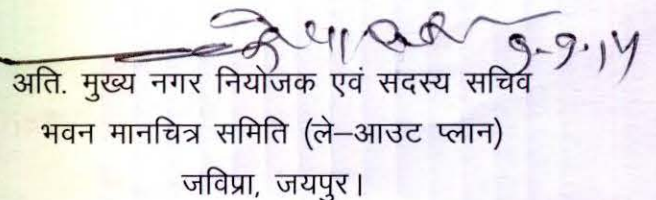 9-9-14
अति. मुख्य नगर नियोजक एवं सदस्य सचिव
भवन मानचित्र समिति (ले–आउट प्लान)
जविप्रा, जयपुर।